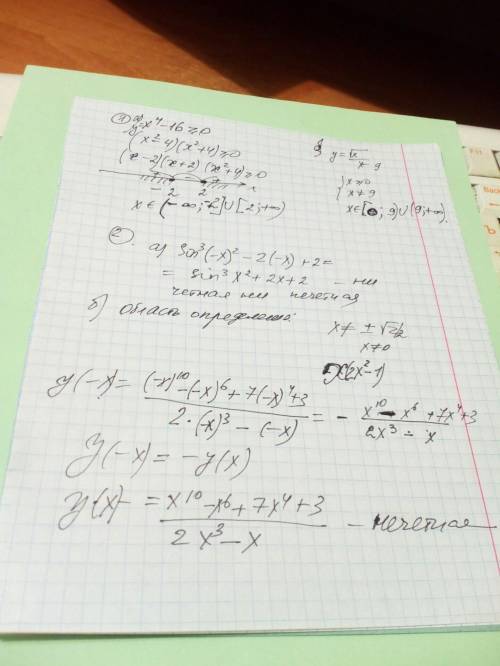 ① а) y = x⁴ - 16 ≥ 0
(x² - 4)(x² + 4) ≥ 0
(x - 2)(x + 2)(x² + 4) ≥ 0
-2 2 x
x ∈ (-∞; -2] ∪ [2; +∞)
y = √x / x - 9
{ x ≥ 0
x ≠ 9
x ∈ [0; 9) ∪ (9; +∞).
② а) sin³(-x)² - 2(-x) + 2 =
= sin³x² + 2x + 2 - ни
четная ни нечетная
б) область определения:
x ≠ ± √2/2
x ≠ 0
x(2x² - 1)
y(-x) = (-x)¹⁰ - (-x)⁶ + 7(-x)⁴ + 3 / 2·(-x)³ - (-x) = - x¹⁰ - x⁶ + 7x⁴ + 3 / 2x³ - x
y(-x) = -y(x)
y(x) = x¹⁰ - x⁶ + 7x⁴ + 3 / 2x³ - x - нечетная